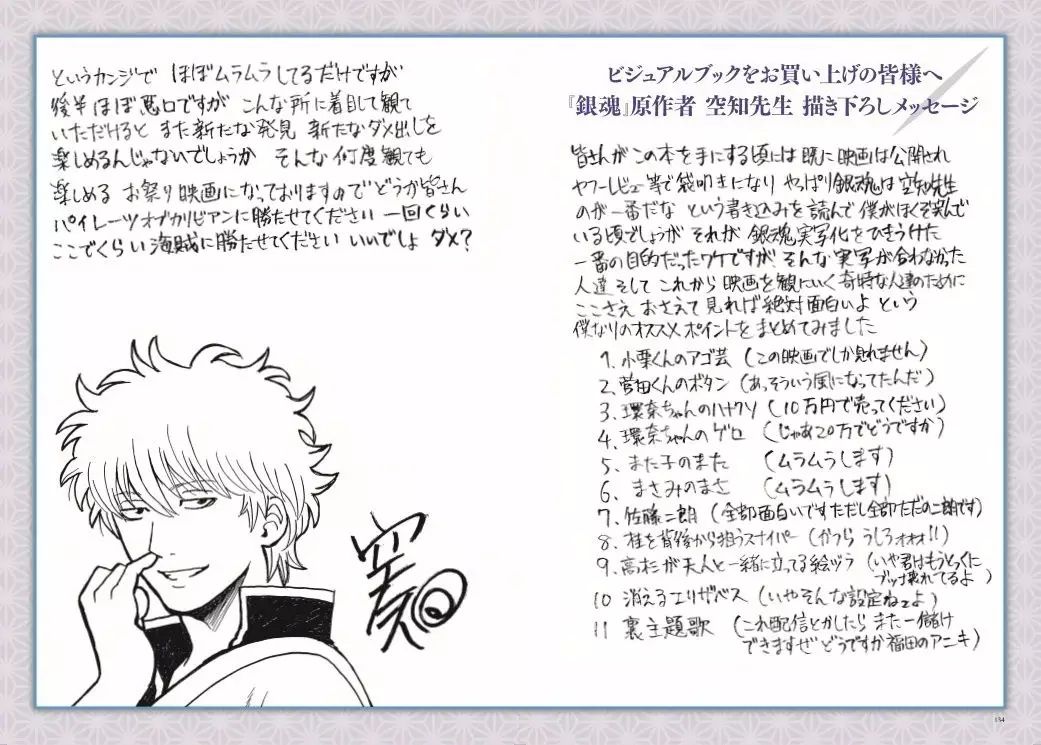 ビジュアルブックをお買い上げの皆様へ
『銀魂』原作者 空知先生 描き下ろしメッセージ
皆さんがこの本を手にする頃には 既に映画は公開され
ヤフーレビュー等で袋叩きになり やっぱり銀魂は空知先生
のが一番だな という書き込みを読んで僕がほくそ笑んで
いる頃でしょうが それが 銀魂実写化をひきうけた
一番の目的だったワケですが そんな実写が合わなかった
人達そして これから映画を観にいく奇特な人達のために
ここさえ おさえて見れば絶対面白いよ という
僕なりのオススメポイントをまとめてみました
1、小栗くんのアゴ芸 (この映画でしか見れません)
2、菅田くんのボタン (あっそういう風になってたんだ)
3、環奈ちゃんのハナクソ (10万円で売ってください)
4、環奈ちゃんのゲロ (じゃあ20万でどうですか)
5、また子のまた (ムラムラします)
6、まさみのまさ (ムラムラします)
7、佐藤二朗 (全部面白いです ただし全部ただの二朗です)
8、桂を背後から狙うスナイパー (かつら うしろォォォ!!)
9、高杉が天人と一緒に立ってる絵ヅラ (いや君はもうとっくに
ブッ壊れてるよ)
10 消えるエリザベス (いやそんな設定ねーよ)
11 裏主題歌 (これ配信とかしたら また一儲け
できますぜ どうですか福田のアニキ)
というカンジで ほぼムラムラしてるだけですが
後半ほぼ悪口ですが こんな所に着目して観て
いただけると また新たな発見 新たなダメ出しを
楽しめるんじゃないでしょうか そんな何度観ても
楽しめる お祭り映画になっておりますので どうか皆さん
パイレーツオブカリビアンに勝たせてください 一回くらい
ここでくらい海賊に勝たせてください いいでしょ ダメ?
空知
134